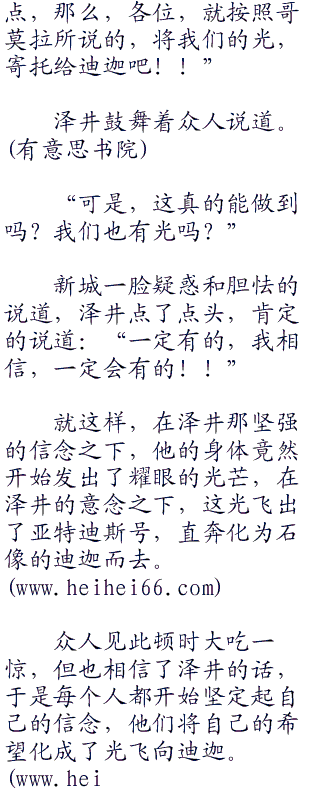 点，那么，各位，就按照哥
莫拉所说的，将我们的光，
寄托给迪迦吧！！”
泽井鼓舞着众人说道。
(有意思书院)
“可是，这真的能做到
吗？我们也有光吗？”
新城一脸疑惑和胆怯的
说道，泽井点了点头，肯定
的说道：“一定有的，我相
信，一定会有的！！”
就这样，在泽井那坚强
的信念之下，他的身体竟然
开始发出了耀眼的光芒，在
泽井的意念之下，这光飞出
了亚特迪斯号，直奔化为石
像的迪迦而去。
(www.heihei66.com)
众人见此顿时大吃一
惊，但也相信了泽井的话，
于是每个人都开始坚定起自
己的信念，他们将自己的希
望化成了光飞向迪迦。
(www.hei